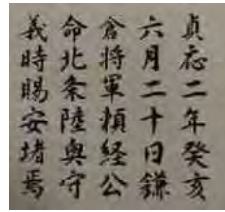 貞応二年癸亥
六月二十日鎌
倉将軍頼経公
命北条陸奥守
義時賜安堵焉